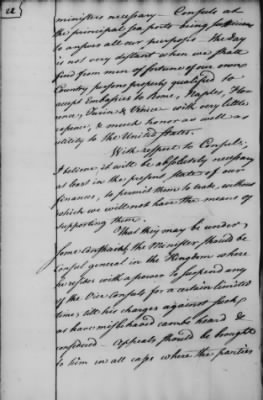 22
ministers necessary — Consuls at
the principal sea ports being sufficient
to answer all our purposes. The day
is not very distant when we shall
find from men of fortune of our own
Country persons properly qualified to
accept Embassies to Rome, Naples, Flo
rence, Turin & Venice with very little
expence, & much honor as well as
utility to the United States.
With respect to Consuls,
I believe it will be absolutely necessary
at least in the present state of our
finances, to permit them to trade, without
which we will not have the means of
supporting them.
That they may be under
some constraint the Minister should be
Consul general in the Kingdom where
he resides with a power to suspend any
of the Vice Consuls for a certain limited
time, till his charges against such
as have misbehaved can be heard &
considered. Appeals should be brought
to him in all cases where the parties